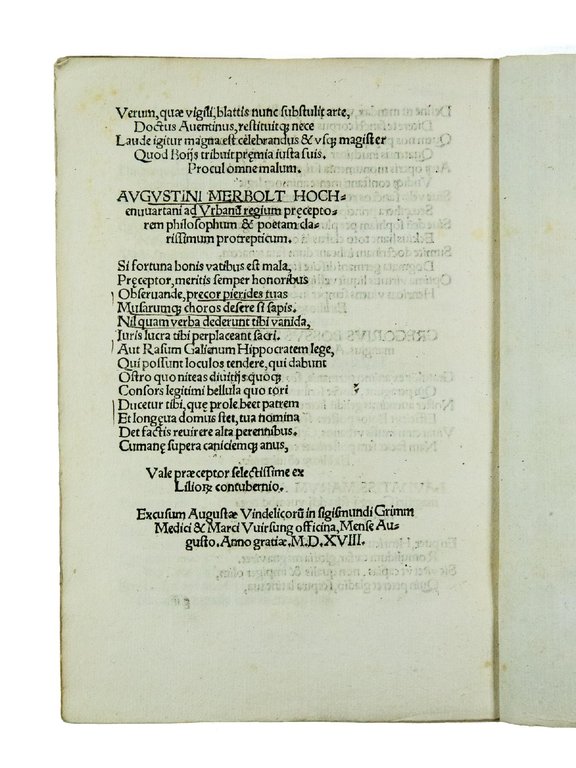 Verum, quæ vigili, blattis nunc substulit arte,
Doctus Auentinus, restituitqȝ nece
Laude igitur magna est celebrandus & vsqȝ magister
Quod Boijs tribuit premia iusta suis.
Procul omne malum.
AVGVSTINI MERBOLT HOCH-
enuuartani ad Vrbanū regium precepto-
rem philosophum & poetam cla-
rissimum protrepticum.
Si fortuna bonis vatibus est mala,
Preceptor, meritis semper honoribus
Obseruande, precor pierides tuas
Musarumqȝ choros desere si sapis.
Nil quam verba dederunt tibi vanida,
Iuris lucra tibi perplaceant sacri.
Aut Rasum Galienum Hippocratem lege,
Qui possunt loculos tendere, qui dabunt
Ostro quo niteas diuitijsquoqȝ
Consors legitimi bellula quo tori
Ducetur tibi, quę prole beet patrem
Et longęua domus stet, tua nomina
Det factis reuirere alta perennibus.
Cumanę supera caniciemqȝ anus,
Vale præceptor selectissime ex
Liliorꝝ contubernio.
Excusum Augustæ Vindelicorū in sigismundi Grimm
Medici & Marci Vuirsung officina, Mense Au-
gusto. Anno gratiæ. M.D.XVIII.